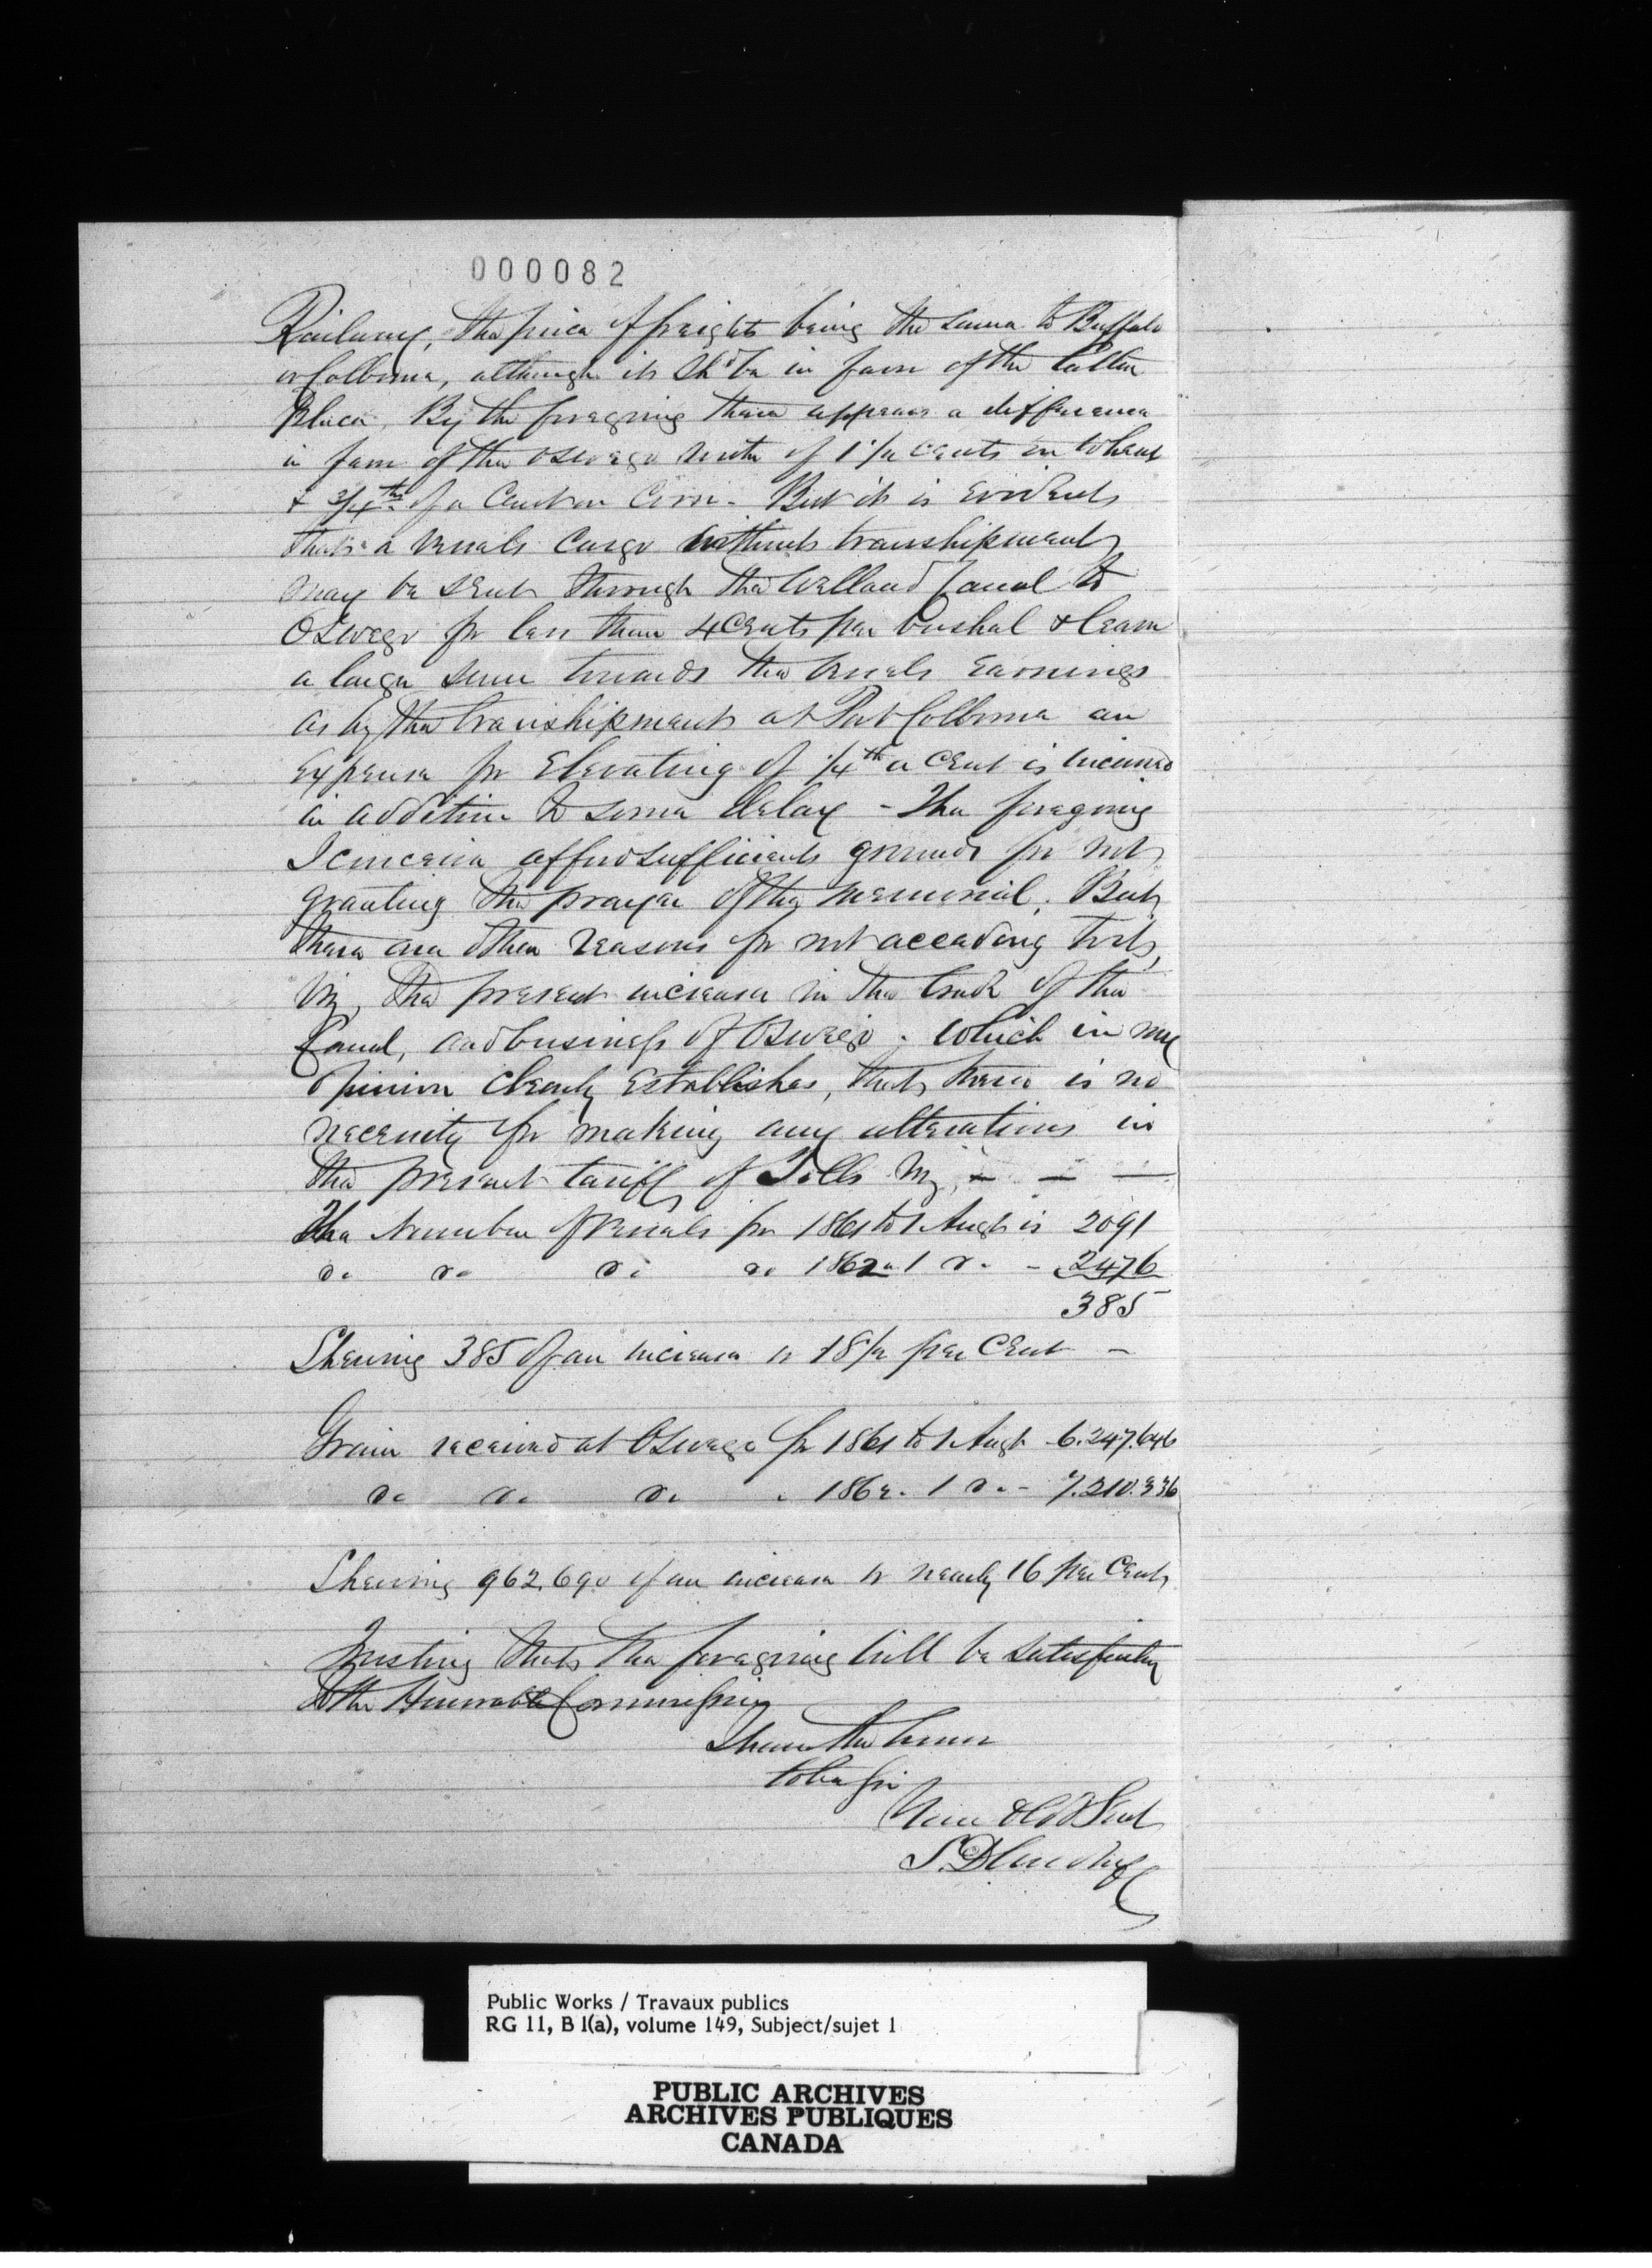 000082
Railway, the price of freight being the same to Buffalo
or Colborne, although it sh'd be in favor of the latter
place. By the foregoing there appears a difference
in favor of the Oswego route of 1 1/2 cents on wheat
& 3/4ths of a Cent on Corn - But it is Evident
that a vessels Cargo without transhipment
may be sent through the Welland Canal to
Oswego for less than 4 Cents per bushel & leave
a large sum towards the vessels Earnings
as by the transhipment at Port Colborne an
Expense for Elevating of 1/4th a Cent is incurred
in addition to some delay - The foregoing
I conceive afford sufficient grounds for not
granting the prayer of the memorial. But
there are other reasons for not acceading to it,
viz, the present increase in the trade of the
Canal, and business of Oswego. Which in my
opinion clearly Establishes, that there is no
necessity for making any alterations in
the present tariff of Tolls viz, - - -
The Number of Vessels for 1861 to 1 Augt is 2091
do do do do 1862 " 1 do - 2476
385
Shewing 385 of an increase or 18 1/2 per Cent -
Grain received at Oswego for 1861 to 1 Augt - 6.247.646
do do do " 1862 " 1 do - 7.210.336
Shewing 962.690 of an increase or nearly 16 per Cent
Trusting that the foregoing will be satisfactory
to the Honorable Commissioner
I have the honor
to be Sir
Your Obdt Servt
S. D. Woodruff
Public Works / Travaux publics
RG 11, B 1(a), volume 149, Subject/sujet 1
PUBLIC ARCHIVES
ARCHIVES PUBLIQUES
CANADA